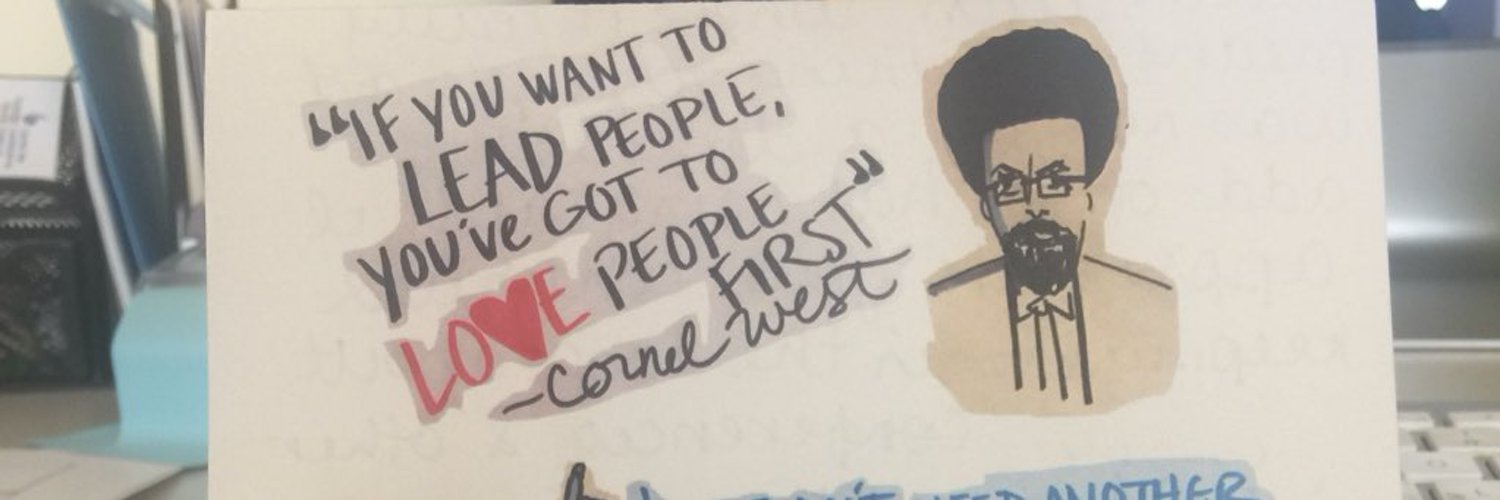 "IF YOU WANT TO
LEAD PEOPLE,
YOU'VE GOT TO
LOVE PEOPLE
FIRST"
-Cornel West
NEED ANOTHER